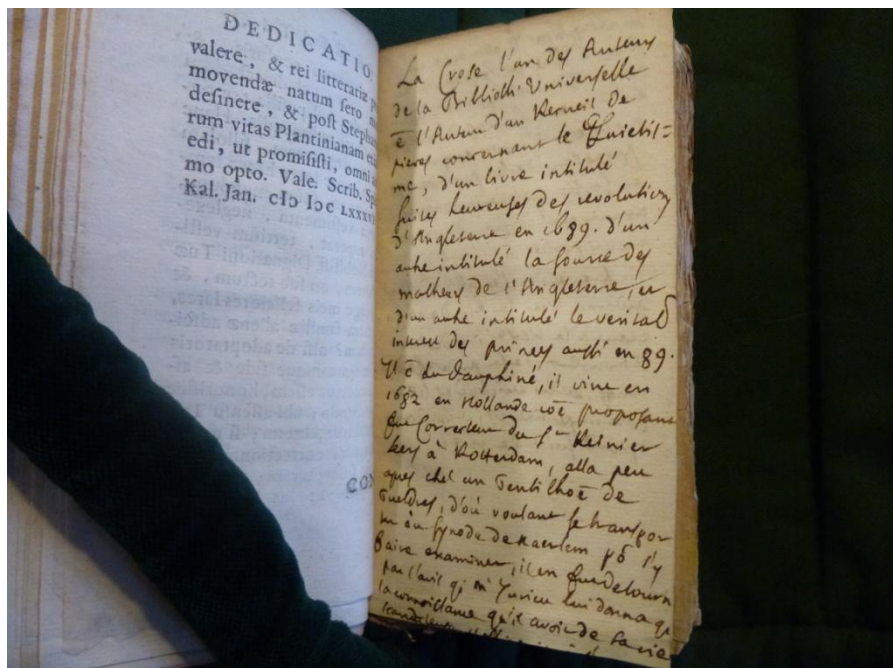 DEDICATIO
valere, & rei litterariæ p
movendæ natum sero
desinere, & post Steph
rum vitas Plantinianam
edi, ut promisisti, omni a
mo opto. Vale. Scrib. Sp
Kal. Jan. cIɔ Iɔc LXXXVI
CON
La Crose l'un des Auteurs
de la Biblioth. Universelle
ē l'Auteur d'un Recueil de
pieces concernant le Quietis=
me, d'un livre intitulé
suites heureuses des revolutions
d'Angleterre en 1689. d'un
autre intitulé la source des
malheurs de l'Angleterre, et
d'un autre intitulé le veritab
interest des princes aussi en 89.
Il ē du Dauphiné, il vint en
1682 en Hollande coē proposant
fut Correcteur du Sr Reinier
Leers à Rotterdam, alla peu
apres chez un Gentilhoē de
Gueldres, d'où voulant se transpor
au Synode de Haerlem pō s'y
faire examiner, il en fut detourn
par l'avis q; Mr Jurieu lui donna q;
la connoissance qu'il avoit de sa vie